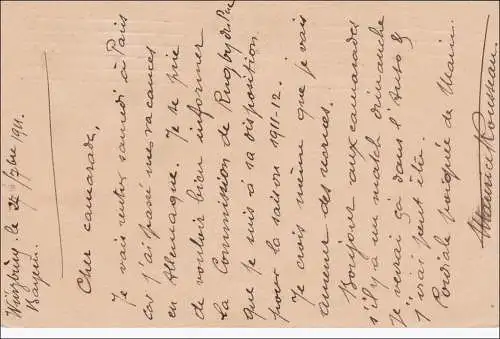 Würzburg le 22 / 9bre 1911.
Bayern.
Cher camarade,
Je vais rentrer samedi à Paris
car j'ai passé mes vacances
en Allemagne. Je te prie
de vouloir bien informer
la Commission de Rugby du
que je suis à sa disposition
pour la saison 1911-12.
Je crois même que je vais
amener des
Bonjour aux camarades
s'il y a un match dimanche
je verrai ça dans l'Auto &
j'irai peut être.
Cordiale poignée de Main.
Maurice Rousseau